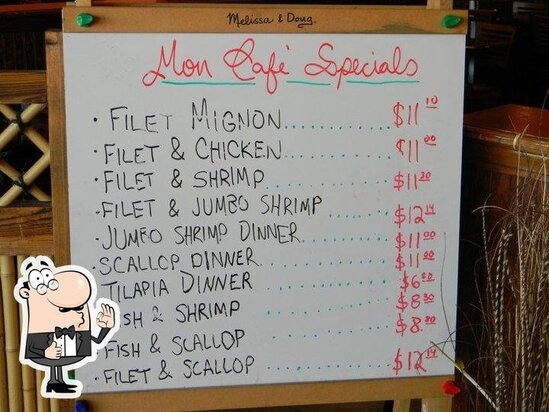 Melissa & Doug.
Mon Café Specials
• FILET MIGNON.......... $11 10
• FILET & CHICKEN.......... $11 00
• FILET & SHRIMP.......... $11 20
• FILET & JUMBO SHRIMP.......... $12 14
• JUMBO SHRIMP DINNER.......... $11 00
SCALLOP DINNER.......... $11 00
TILAPIA DINNER.......... $6 80
SH & SHRIMP.......... $8 30
FISH & SCALLOP.......... $8 80
• FILET & SCALLOP.......... $12 14